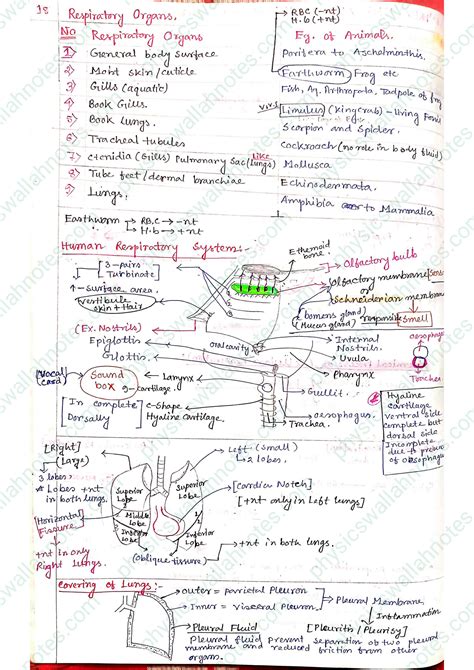 18
Respiratory Organs.
RBC (-nt)
H.b (+nt)
No Respiratory Organs
Eg. of Animals.
1) General body surface
Porifera to Aschelminthis.
2) Moist skin/cuticle
Earthworm, Frog etc
3) Gills (aquatic)
Fish, Aq. Arthropoda, Tadpole of frog
4) Book Gills.
Limulus (Kingcrab) - living Fossil
5) Book lungs.
Scorpion and Spider.
6) Tracheal tubules
Cockroach (no role in body fluid)
7) ctenidia (Gills) Pulmonary Sac (like lungs)
Mollusca
8) Tube feet/dermal branchiae
Echinodermata.
9) Lungs.
Amphibia to Mammalia
Earthworm → R.B.C → -nt
H.b → +nt
Human Respiratory System:-
Ethemoid bone.
Olfactory bulb
[3-pairs Turbinate]
↑-Surface area.
Vestibule skin + Hair
Olfactory membrane
or
Schneiderian membrane
(Bomens gland)
(Mucus gland) responsible smell
(Ex. Nostrils)
Internal Nostrils.
Epiglottis
oral cavity
Uvula
Glottis.
Pharynx
oesophagus
Trachea
(Vocal card)
Sound box
Larynx
9-cartilage.
Gullet.
[In complete Dorsally]
c-Shape
Hyaline Cartilage.
oesophagus.
Trachea.
Hyaline
cartilage
ventral side
complete but
dorsal side
Incomplete
due to
of oesophagus
[Right]
(Large)
3 lobes
Left (Small)
2 lobes.
[Cardiac Notch]
[+nt only in Left lungs]
* Lobes +nt
in both lungs.
Superior Lobe
Superior Lobe
Middle Lobe
Inferior Lobe
Inferior Lobe
[Horizontal] Fissure
+nt in only
Right lungs
(oblique fissure)
+nt in both lungs.
Covering of Lungs:-
outer = parietal pleuron
Inner = visceral pleuron.
Pleural Membrane
Inflammation
[Pleuritis / Pleurisy]
Pleural Fluid
Pleural fluid prevent separation of two pleural
membrane and reduced friction from other
organ.